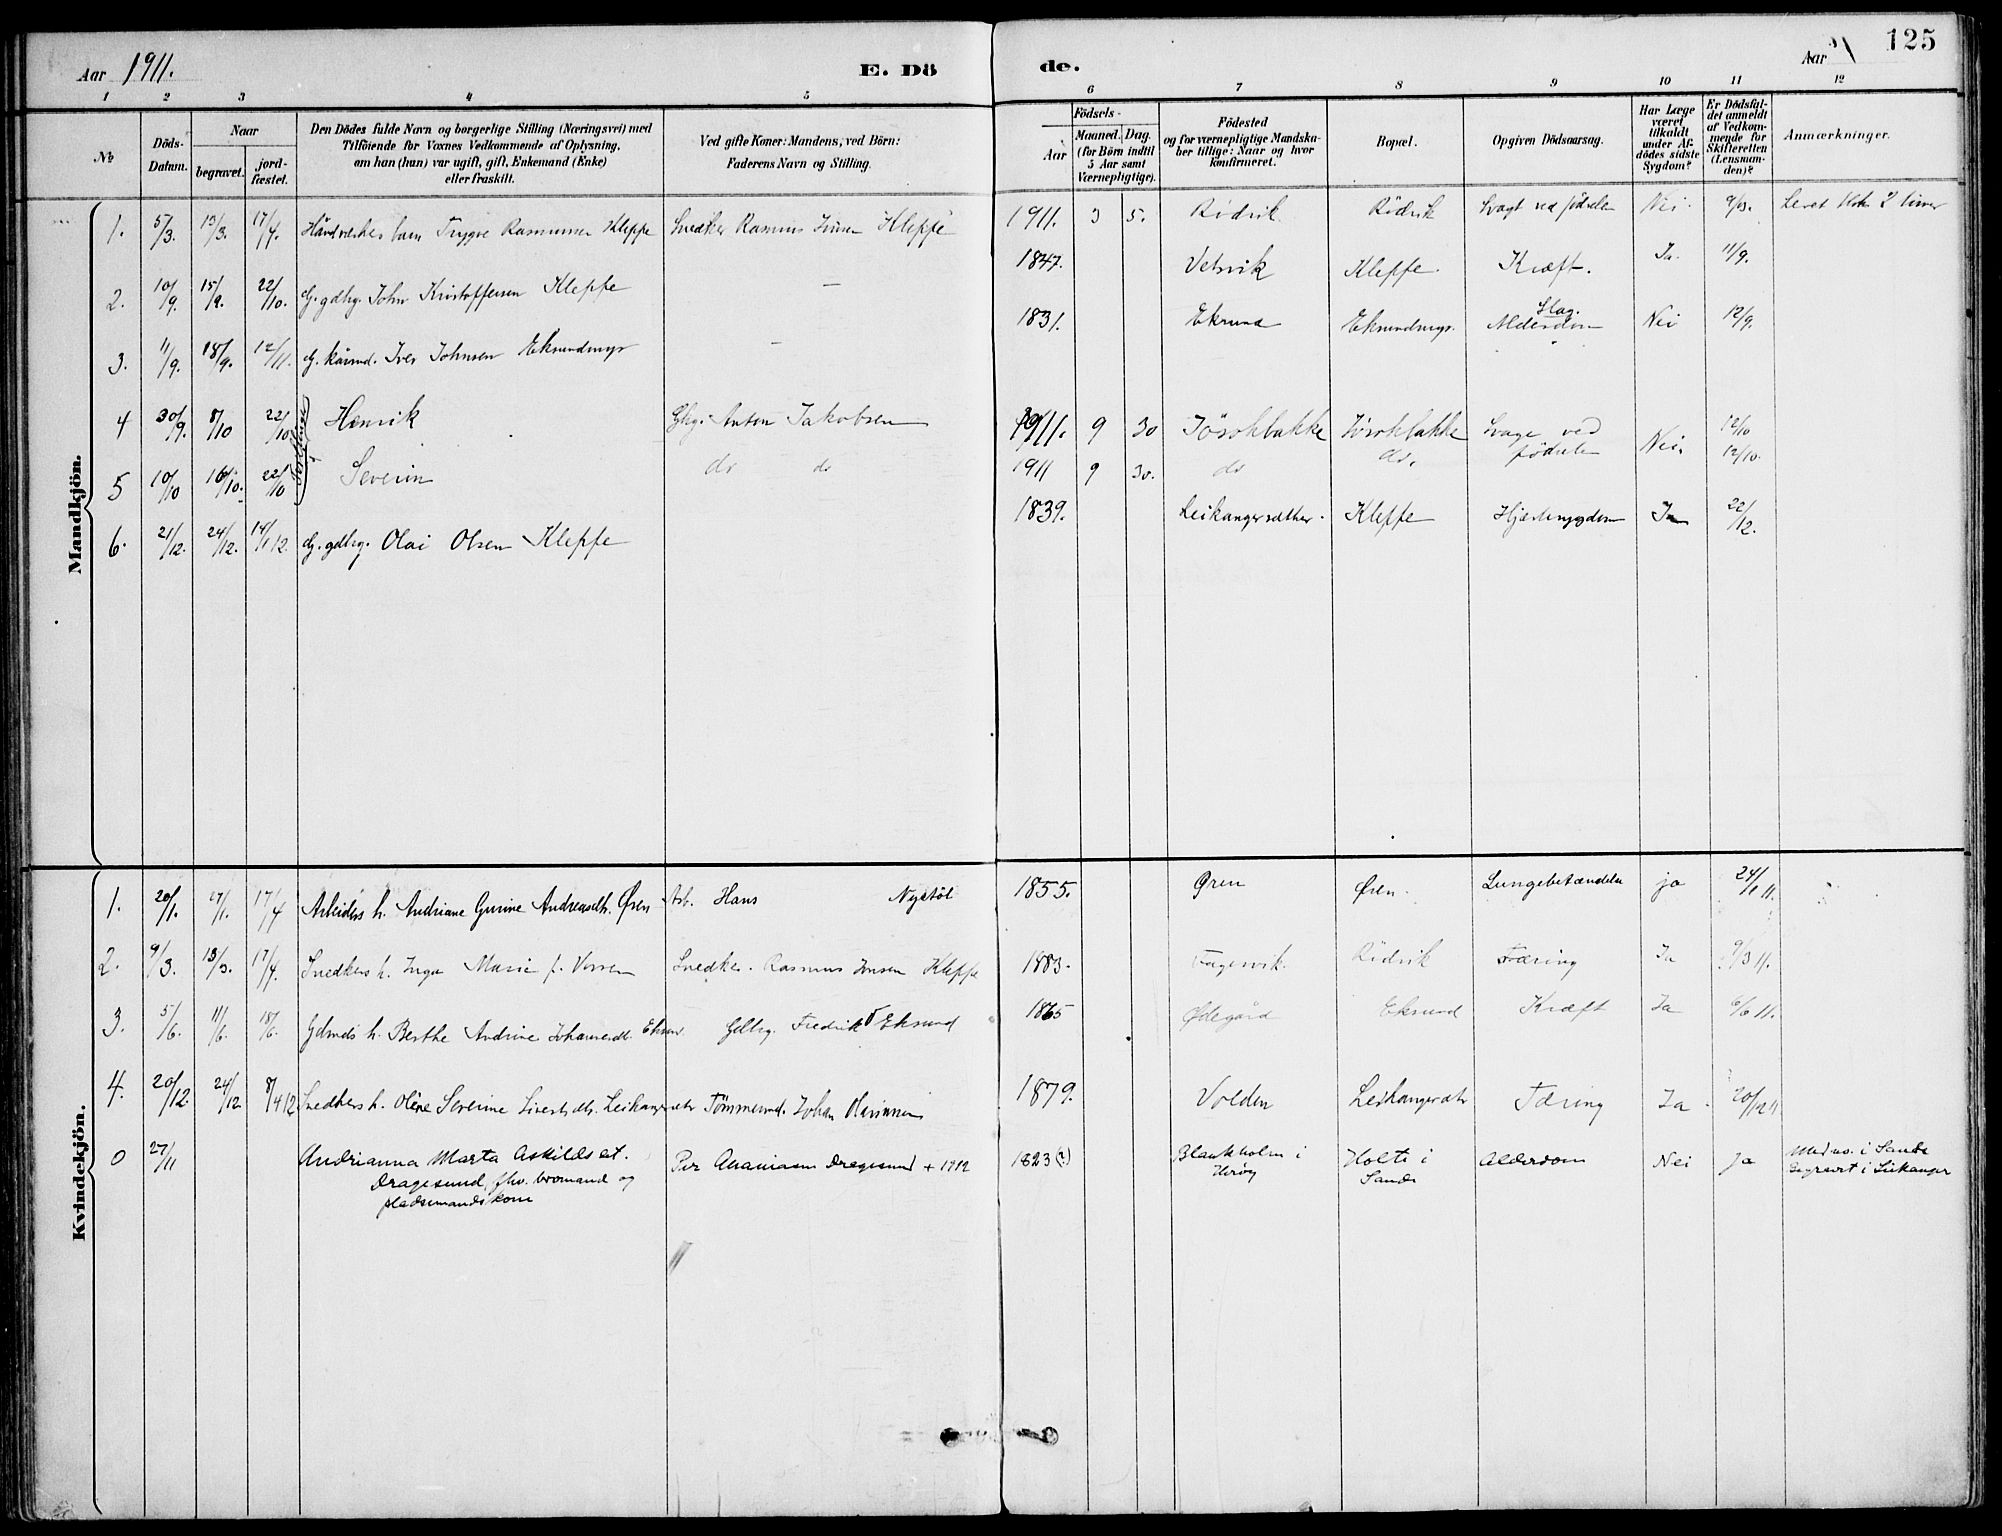 Aar 1911.
E. Döde.
Aar
125
1 2 3 4 5 6 7 8 9 10 11 12
No
Döds-Datum.
Naar
begravet.
jord-fæstet.
Den Dödes fulde Navn og borgerlige Stilling (Næringsvei) med
Tilföiende for Voxnes Vedkommende af Oplysning,
om han (hun) var ugift, gift, Enkemand (Enke)
eller fraskilt.
Ved gifte Koner: Mandens, ved Börn:
Faderens Navn og Stilling.
Födsels-
Aar
Maaned. Dag.
(for Börn indtil
5 Aar samt
Værnepligtige).
Födested
og for værnepligtige Mandska-
ber tillige: Naar og hvor
konfirmeret.
Bopæl.
Opgiven Dödsaarsag.
Har Læge
været
tilkaldt
under Af-
dödes sidste
Sygdom?
Er Dödsfal-
det anmeldt
af Vedkom-
mende for
Skifteretten
(Lensman-
den)?
Anmærkninger.
Mandkjön.
1. 5/3. 13/3. 17/4. Håndværkers barn Trygve Rasmussen Kleppe Snedker Rasmus Jonsen Kleppe 1911. 3 5. Rödvik Rödvik Svagt ved födselen Nei. 9/3. Levet 2 timer
2. 10/9. 15/9. 22/10. G. gdbg. John Kristoffersen Kleppe — 1847. Vetvik Kleppe. Kræft. Ja. 11/9.
3. 11/9. 18/9. 12/11. G. kårmd. Iver Johnsen Eksundmyr — 1831. Eksund Eksundmyr. Slag. Alderdom Nei 12/9.
4 30/9. 8/10 22/10 Henrik Gbg. Anton Jakobsen 1911. 9 30 Jösokbakke Jösokbakke Svage ved födselen Nei. 12/10
5 10/10 16/10. 22/10 Severin do do 1911 9 30. do do. 12/10.
6. 21/12. 24/12. 14/1 12 G. gdbg. Olai Olsen Kleppe 1839. Leikangersæther. Kleppe Hjertesygdom Ja 22/12.
Kvindekjön.
1. 20/1. 27/1. 17/4 Arbeiders h. Andriane Gurine Andreasdtr. Øren Arb. Hans Nystöl 1855. Øren Øren. Lungebetændelse ja 24/1 11.
2. 9/3. 13/3. 17/4. Snedkers h. Inga Marie f. Vorren Snedker. Rasmus Jonsen Kleppe 1883. Fagervik. Rödvik Tæring Ja 9/3 11.
3. 5/6. 11/6. 18/6. Gdmds h. Berthe Andrine Johannesdtr. Eksund Gdbg. Fredrik Eksund 1865 Ødegård Eksund Kræft Ja 6/6 11.
4. 20/12. 24/12 8/4 12 Snedkers h. Oline Severine Sivertsdtr. Leikangersætr Tömmermd. Johan Olai 1879. Volden Leikangersætr Tæring Ja 20/12 11
0 27/11 Andrianna Marta Askildsdt. Per Ananiasen Dragesund + 1912 1823 (?) Blankholm i Holte i Alderdom Nei Ja Medno. i Sande
Dragesund, fhv. bromand og Herøy Sande begravet i Leikanger
pladsmandskone